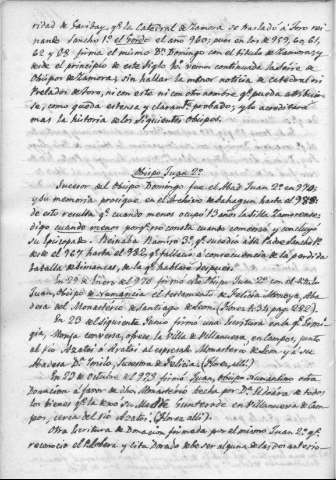 ridad de Garibay, qe. la Catedral de Zamora se trasladó a Toro rei-
nante Sancho 1º el Gordo el año 960; pues en los de 959, 60, 61,
62 y 68 firma el mismo Dn. Domingo con el titulo de Zamora, y
desde el principio de este Siglo Xº vemos continuada la Serie de
Obispos de Zamora, sin hallar la menor noticia de catedral ni
Prelados de Toro, ni con este ni con otro nombre qe. pueda atribuirse-
le, como queda estensa y claramte. probado, y lo acreditará
mas la historia de los siguientes Obispos.
Obispo Juan 2º
Sucesor del Obispo Domingo fue el Abad Juan 2º en 970:
y su memoria prosigue en el Archivo de Sahagun hasta el 983:
de esto resulta qe. cuando menos ocupó 13 años la Silla Zamorense:
digo cuando menos porqe. no consta cuando comenzó y concluyó
su Episcopado. Reinaba Ramiro 3º, qe. sucedió a su Padre Sancho 1º
desde el 967 hasta el 982 qe. falleció a consecuencia de la perdida
batalla de Simancas, de la qe. hablaré despues.
En 29 de Enero de 970 firmó este Obispo Juan 2º con el de Leon
Juan, Obispo de Numancia el testamento de Felicia Monoya, Aba-
desa del Monasterio de Santiago de Leon. (Florez t. 34 pag. 282).
En 23 del siguiente Junio firmó una Escritura en la qe. Ermi-
gia, Monja conversa, ofrece la Villa de Villanueva, en Campos, junto
al rio Azatoi o Aratoi al espresado Monasterio de Leon y a su
Abadesa Da. Imilo, Sucesora de Felicia (Florez, alli).
En 29 de Octubre de 973 firmó Juan, Obispo Numantino otra
Donacion a favor de dicho Monasterio hecha por Da. Eldoara de todos
los bienes qe. la dexó su Madre Gunterode en Villanueva de Cam-
pos, cerca del rio Azatoi. (Florez, alli).
Otra Escritura de Donacion firmada por el mismo Juan 2º qe.
reconoció el P. Lobera y cita Dorado debe ser alguna de las dos anterio-